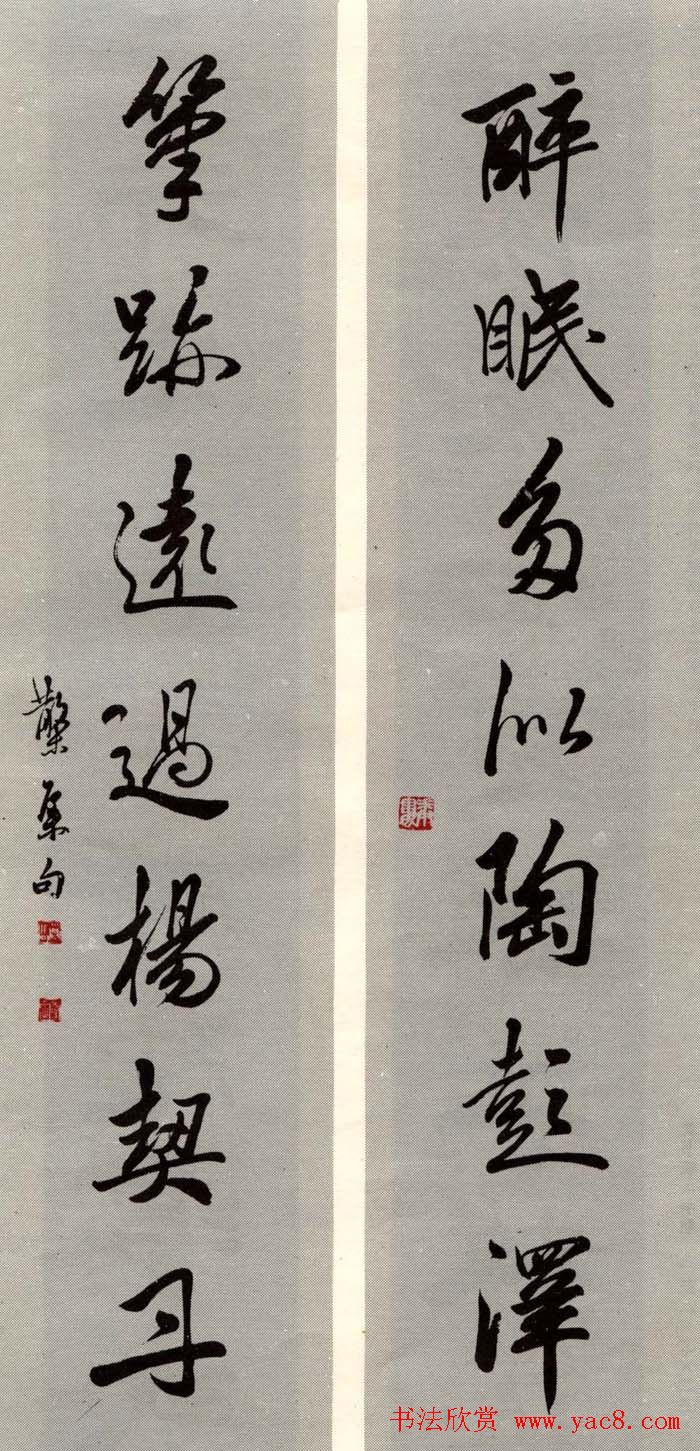 醉眠多似陶彭澤
筆跡遠過楊契丹
集句
书法欣赏 www.yac8.com